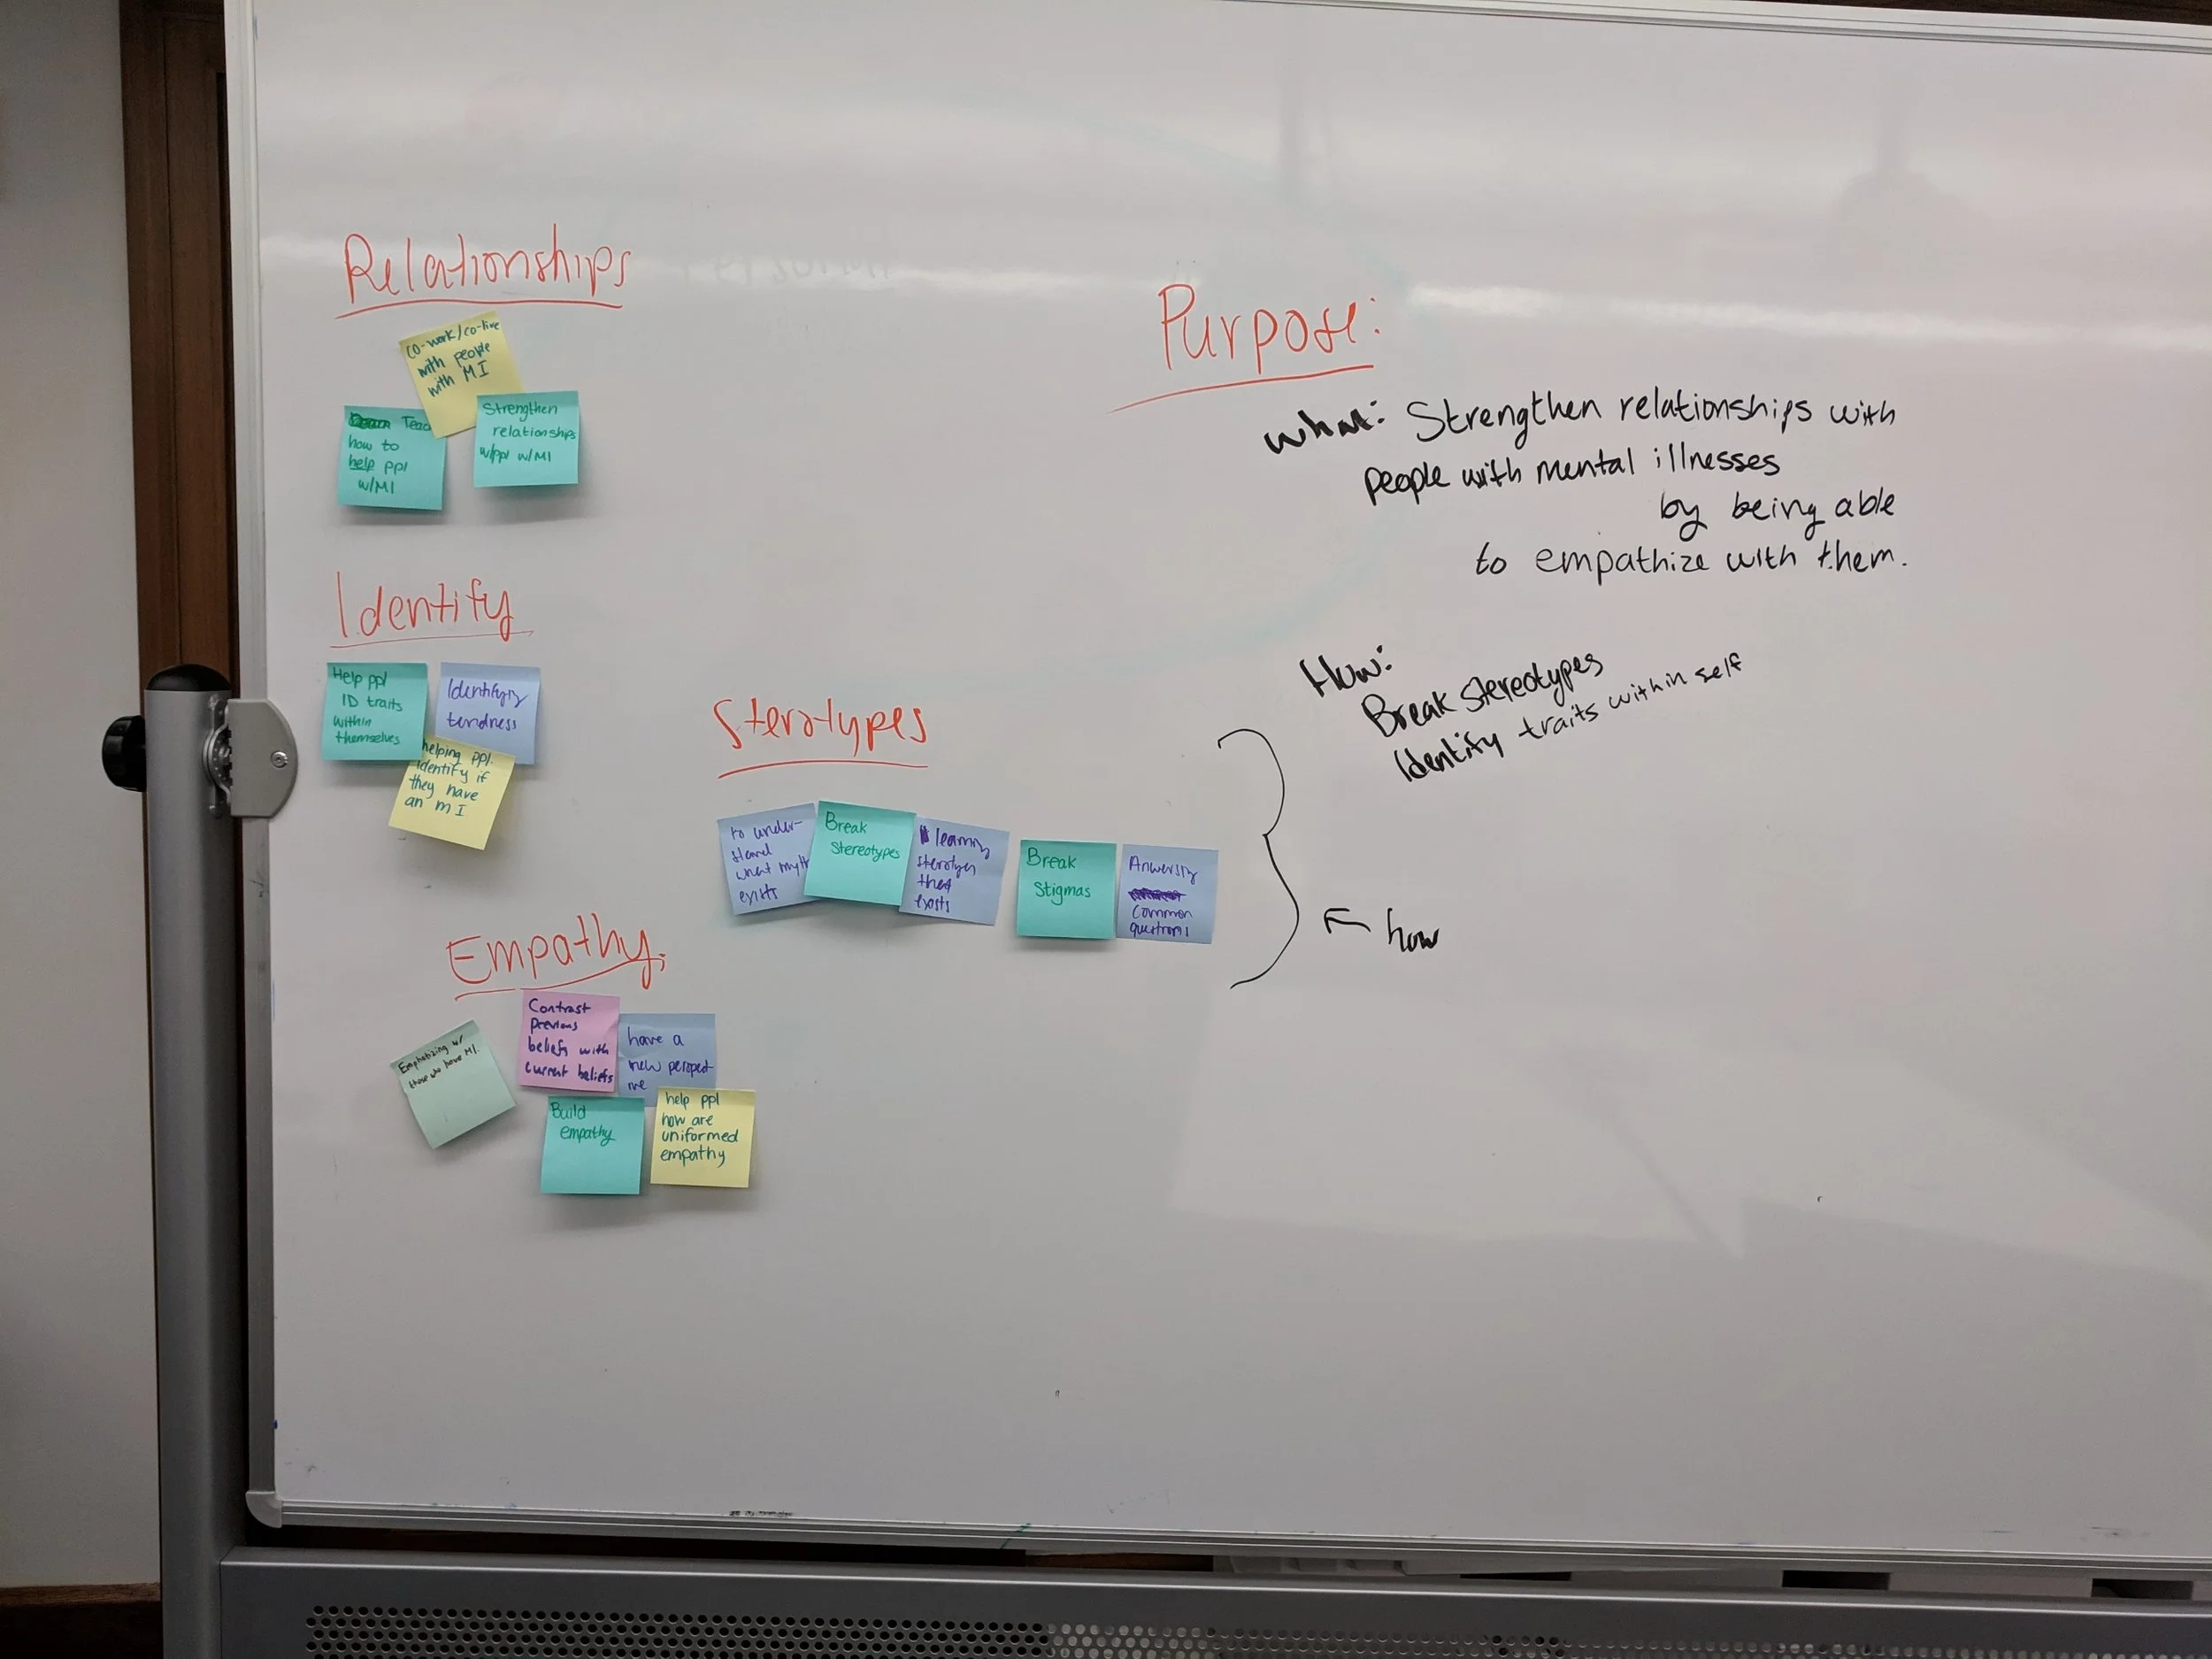 Relationships
co-work/co-live
with people
with MI
Teac
how to
help ppl
w/MI
Strengthen
relationships
w/ppl w/MI
Identify
Help ppl
ID traits
within
themselves
Identifying
tendness
helping ppl.
identify if
they have
an MI
Sterotypes
to under-
stand
what myth
exists
Break
Stereotypes
learning
sterotypes
that
exists
Break
Stigmas
Anwersing
Common
questions
Empathy
Emphatizing w/
those who have MI.
Contrast
previous
beliefs with
current beliefs
have a
new perspect
ive
Build
empathy
help ppl
how are
uniformed
empathy
Purpose:
what: Strengthen relationships with
people with mental illnesses
by being able
to empathize with them.
How:
Break stereotypes
Identify traits within self
← how